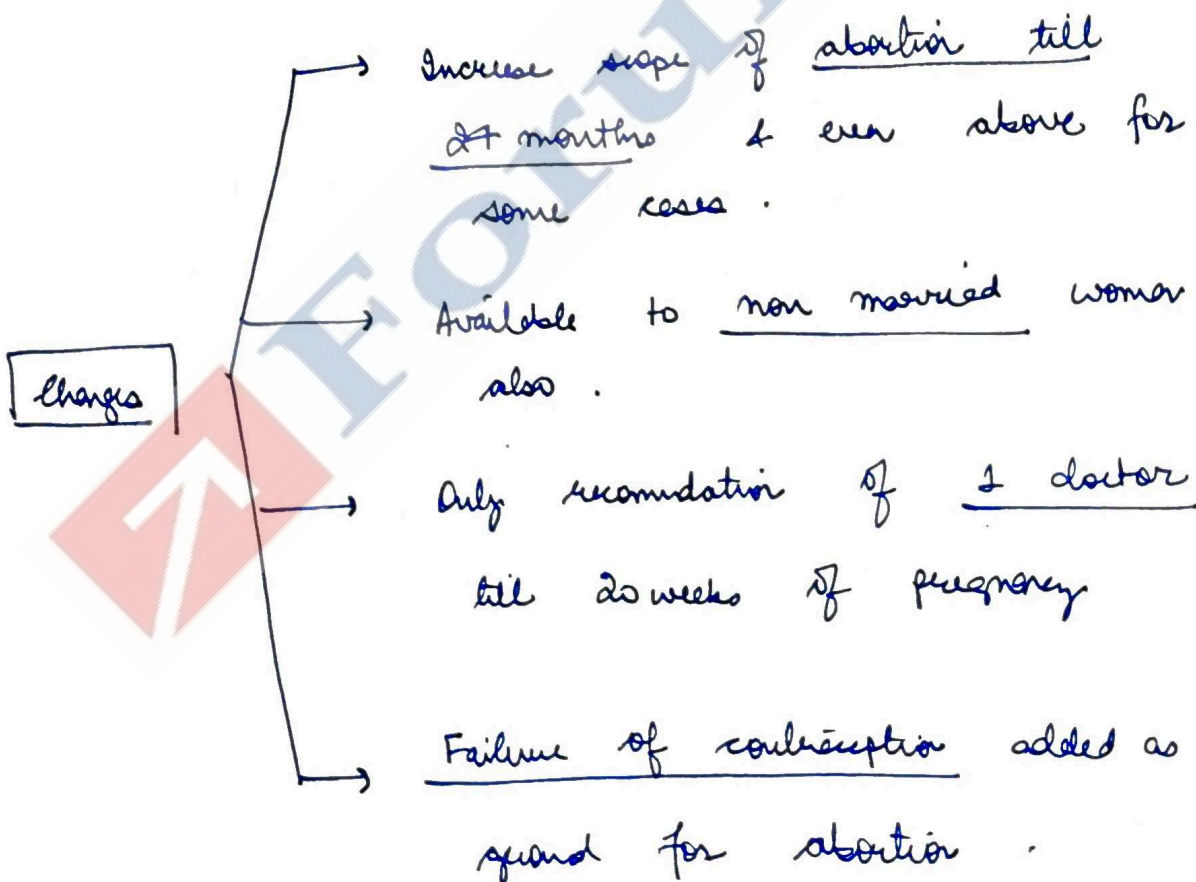 Increase scope of abortion till
24 months & even above for
some cases .
Available to non married women
also .
Changes
Only recomndation of 1 doctor
till 20 weeks of pregnancy
Failure of contraception added as
ground for abortion .
Forum